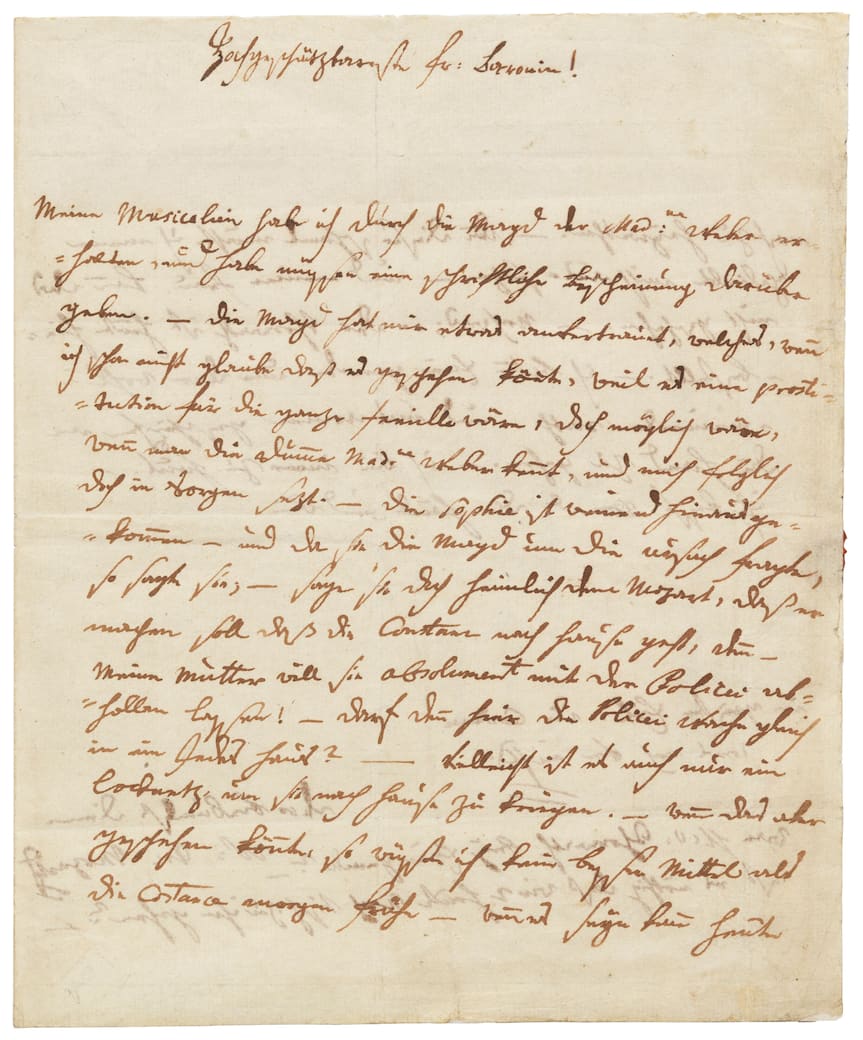 Hochgeschätzbareste fr: Baronin!
Meine Musicalien habe ich durch die Magd der Mad:me Weber er-
=halten, und habe müssen eine schriftliche bescheinung darüber
geben. — die Magd hat mir etwas anvertrauet, welches, wenn
ich schon nicht glaube daß es geschehen könte, weil es eine prosti-
=tution für die ganze familie wäre, doch möglich wäre,
wenn man die dumme Mad:me Weber kennt, und mich folglich
doch in Sorgen setzt. — die sophie ist weinend hinausge=
=kommen — und da sie die Magd um die ursach fragte,
so sagte sie; — sage sie doch heimlich dem Mozart, daß er
machen soll daß die Constanz nach hause geht, denn —
Meine Mutter will sie absolument mit der Policei ab=
=hollen lassen! — darf denn hier die Policei wache gleich
in ein Jedes haus? — Vielleicht ist es auch nur ein
locknetz um sie nach hause zu kriegen. — wenn das aber
geschehen könnte, so wüste ich kein bessers Mittel als
die Costance morgen frühe — wenn es seyn kann heute